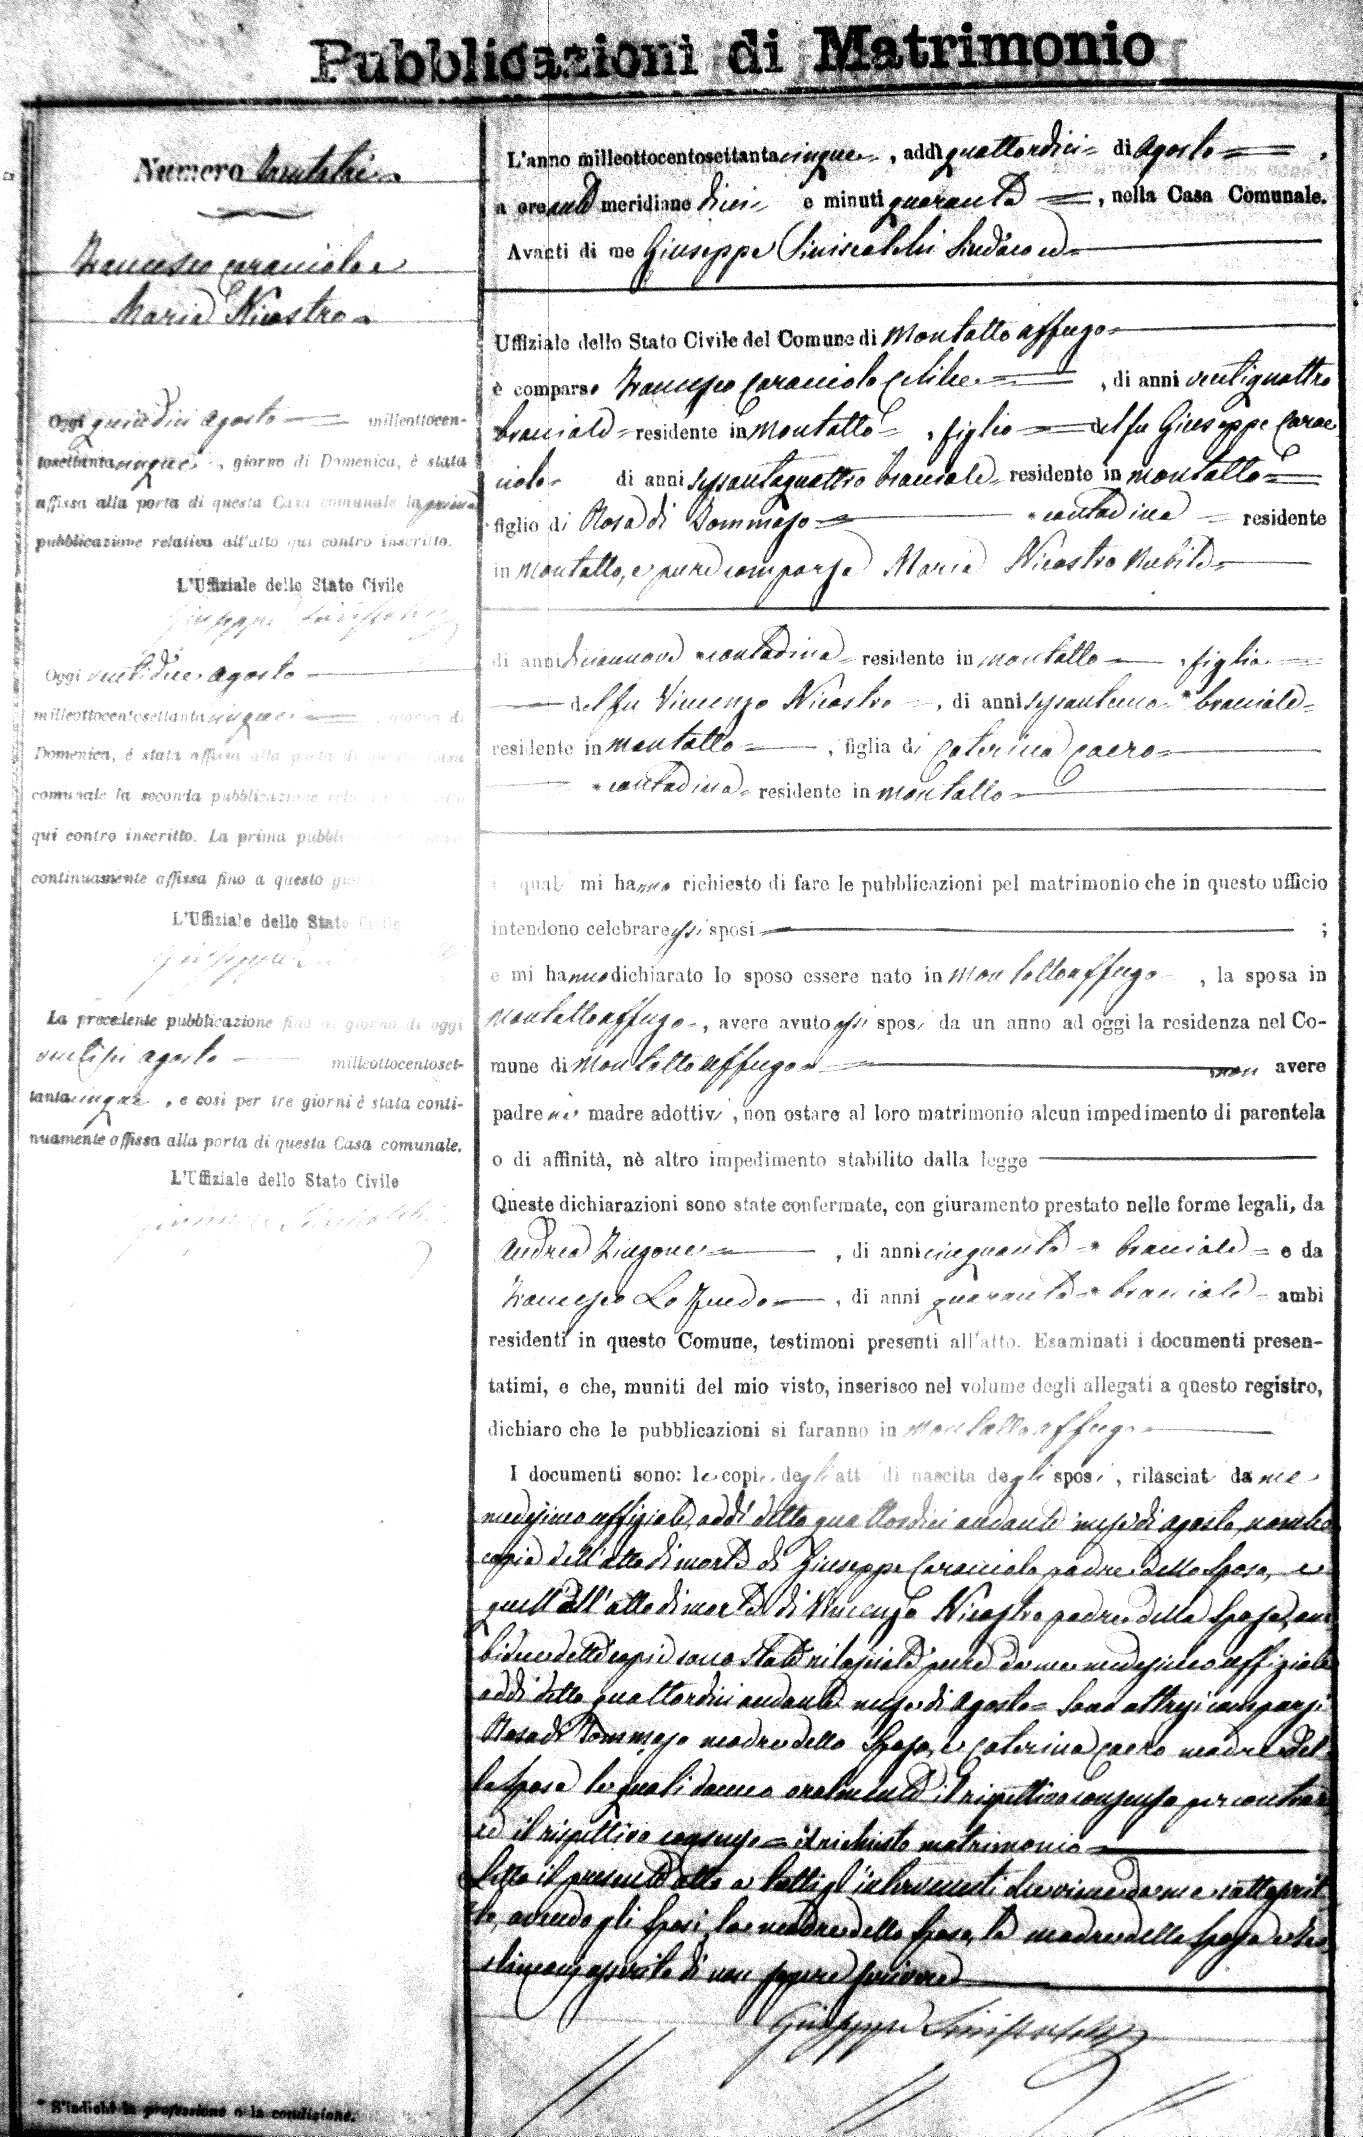 Pubblicazioni di Matrimonio
Numero Ventitrè
Francesco Caraciolo e
Maria Nicastro
Oggi quindici Agosto milleottocen-
tosettantacinque, giorno di Domenica, è stata
affissa alla porta di questa Casa comunale la prima
pubblicazione relativa all'atto qui contro inscritto.
L'Uffiziale dello Stato Civile
Giuseppe Siniscalchi
Oggi ventidue Agosto
milleottocentosettantacinque, giorno di
Domenica, è stata affissa alla porta di questa Casa
comunale la seconda pubblicazione
qui contro inscritto. La prima
continuamente affissa fino a questo
L'Uffiziale dello Stato Civile
Giuseppe
La precedente pubblicazione fino al giorno di oggi
ventisei agosto milleottocentoset-
tantacinque, e così per tre giorni è stata conti-
nuamente affissa alla porta di questa Casa comunale.
L'Uffiziale dello Stato Civile
Giuseppe Siniscalchi
* S'indichi la professione o la condizione.
L'anno milleottocentosettantacinque, addì quattordici di Agosto,
a ore anti meridiane dieci e minuti quaranta, nella Casa Comunale.
Avanti di me Giuseppe Siniscalchi Sindaco ed
Uffiziale dello Stato Civile del Comune di Montalto Uffugo
è comparso Francesco Caraciolo Celibe, di anni ventiquattro
bracciale residente in Montalto, figlio del fu Giuseppe Carac
ciolo di anni sessantaquattro bracciale residente in Montalto
figlio di Rosa di Tommaso * contadina residente
in Montalto, e pure comparsa Maria Nicastro Nubile
di anni diciannove * contadina residente in Montalto, figlia
del fu Vincenzo Nicastro, di anni sessantuno * bracciale
residente in Montalto, figlia di Caterina Caero
* contadina residente in Montalto
i quali mi hanno richiesto di fare le pubblicazioni pel matrimonio che in questo ufficio
intendono celebrare essi sposi ;
e mi hanno dichiarato lo sposo essere nato in Montalto Uffugo, la sposa in
Montalto Uffugo, avere avuto essi sposi da un anno ad oggi la residenza nel Co-
mune di Montalto Uffugo non avere
padre nè madre adottivi, non ostare al loro matrimonio alcun impedimento di parentela
o di affinità, nè altro impedimento stabilito dalla legge
Queste dichiarazioni sono state confermate, con giuramento prestato nelle forme legali, da
Andrea Zingone, di anni cinquanta * bracciale e da
Francesco Lo Feudo, di anni quaranta * bracciale ambi
residenti in questo Comune, testimoni presenti all'atto. Esaminati i documenti presen-
tatimi, e che, muniti del mio visto, inserisco nel volume degli allegati a questo registro,
dichiaro che le pubblicazioni si faranno in Montalto Uffugo
I documenti sono: le copie degli atti di nascita degli sposi, rilasciati da me
medesimo uffiziale, addì detto quattordici andante mese di Agosto,
copia dell'atto di morte di Giuseppe Caraciolo padre dello Sposo, e
quell'dell'atto di morte di Vincenzo Nicastro padre della Sposa, am
bidue dette copie sono state rilasciate pure da me medesimo uffiziale
addì detto quattordici andante mese di Agosto = Sono altresì comparsi
Rosa di Tommaso madre dello Sposo, e Caterina Caero madre del
la Sposa le quali danno oralmente il rispettivo consenso per contrar
ed il rispettivo consenso = il richiesto matrimonio
Letto il presente atto a tutti gl'intervenuti viene da me sottoscrit
to, avendo gli Sposi, la madre dello Sposo, la madre della Sposa e tes
timoni asserito di non sapere scrivere
Giuseppe Siniscalchi